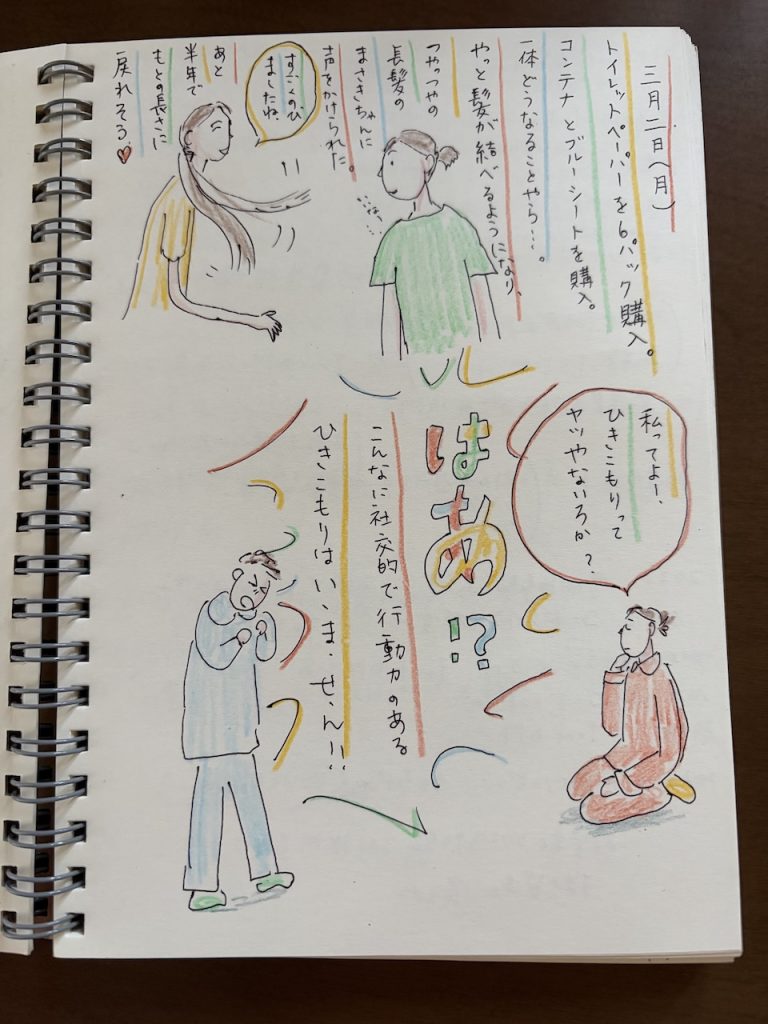 三月二日(月)
トイレットペーパーを6パック購入。
コンテナとブルーシートを購入。
一体どうなることやら…。
やっと髪が結べるようになり、
つやっつやの
長髪の
まさきちゃんに
声をかけられた。
すごくのび
ましたね
あと
半年で
もとの長さに
戻れそう♥
私ってよー、
ひきこもりって
ヤツやないろか?
はあ!?
こんなに社交的で行動力のある
ひきこもりはい、ま、せ、ん!!